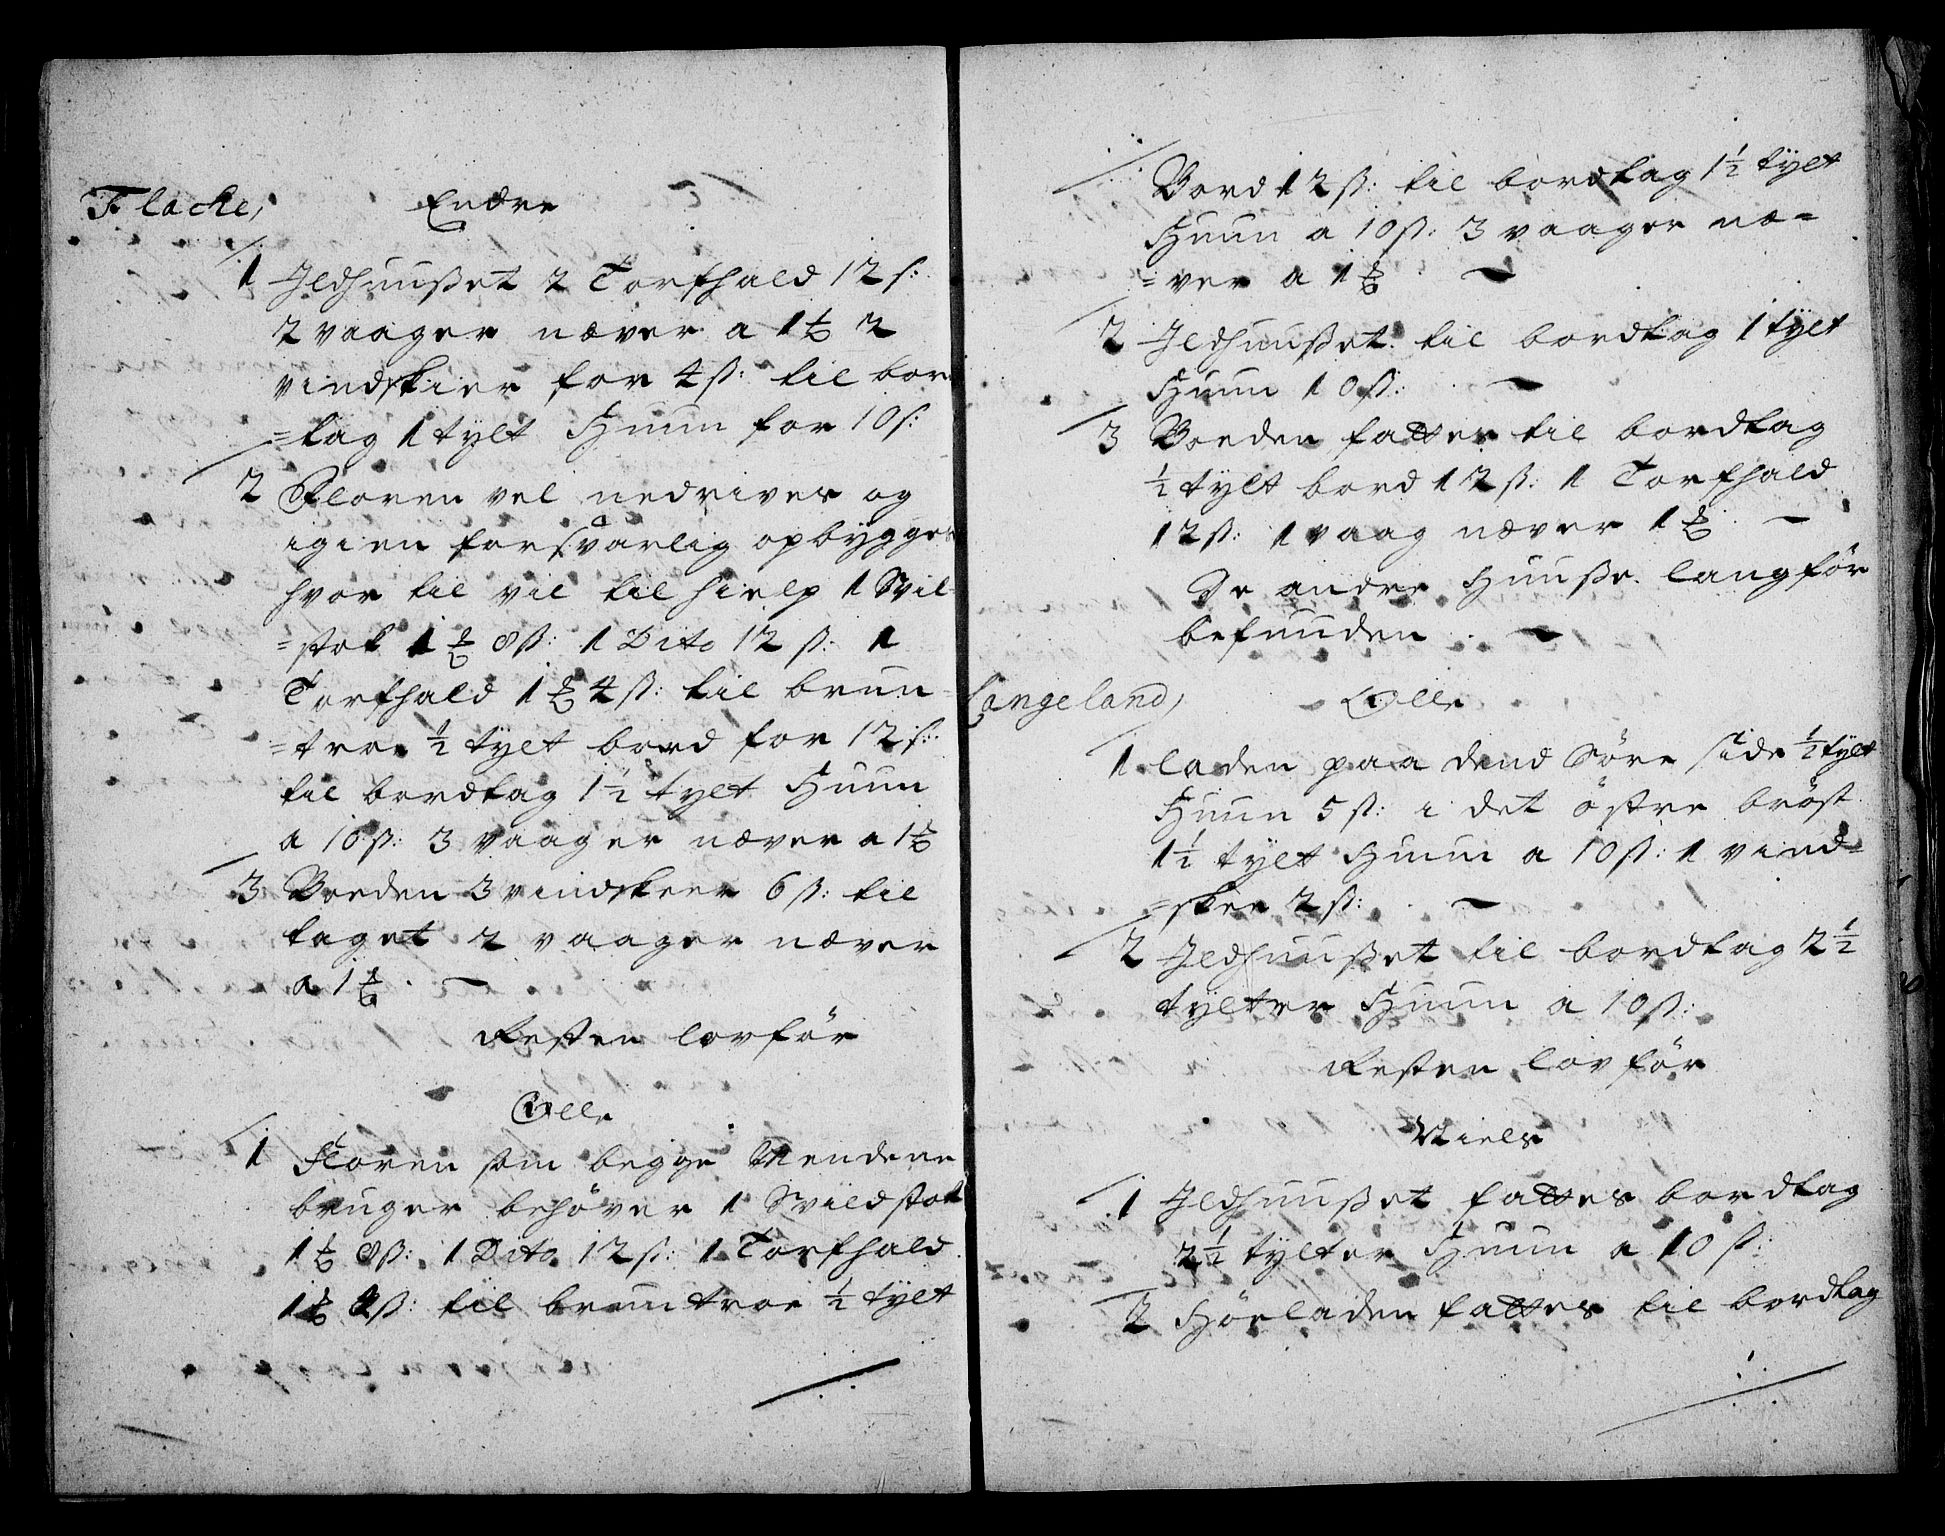 Flacke,
Endre
1 Jldhuußet 2 Torfhald 12 ß:
2 vaager næver a 1 ℔ 2
vindskier for 4 ß: til bor
=tag 1 tylt Huun for 10 ß:
2 Floren vel nedrives og
igien forsvarlig opbygges
hvor til vil til hielp 1 Svil=
=stok 1 ℔ 8 ß: 1 Dito 12 ß: 1
Torfhald 1 ℔ 4 ß: til brun=
=troe ½ tylt bord for 12 ß:
til bordtag 1½ tylt Huun
a 10 ß: 3 vaager næver a 1 ℔
3 Boeden 3 vindskeer 6 ß: til
taget 2 vaager næver
a 1 ℔.
Resten lovför
Olle
1 Floren som begge Mendene
bruger behøver 1 Svildstok
1 ℔ 8 ß: 1 Dito 12 ß: 1 Torfhald
1 ℔ 4 ß: til bruntroe ½ tylt
Bord 12 ß: til bordtag 1½ tylt
Huun a 10 ß: 3 vaager næ=
=ver a 1 ℔
2 Jldhuußet til bordtag 1 tylt
Huun 10 ß:
3 Boeden fattes til bordtag
½ tylt bord 12 ß: 1 Torfhald
12 ß: 1 vaag næver 1 ℔.
De andre Huuße langför
befunden.
Langeland,
Olle
1 laden paa dend Söre side ½ tylt
Huun 5 ß: i det östre bröst
1½ tylt Huun a 10 ß: 1 vind=
=skee 2 ß:
2 Jldhuußet til bordtag 2½
tylter Huun a 10 ß:
Resten lovför
Niels
1 Jldhuußet fattes bordtag
2½ tylter Huun a 10 ß:
2 Höeladen fattes til bordtag